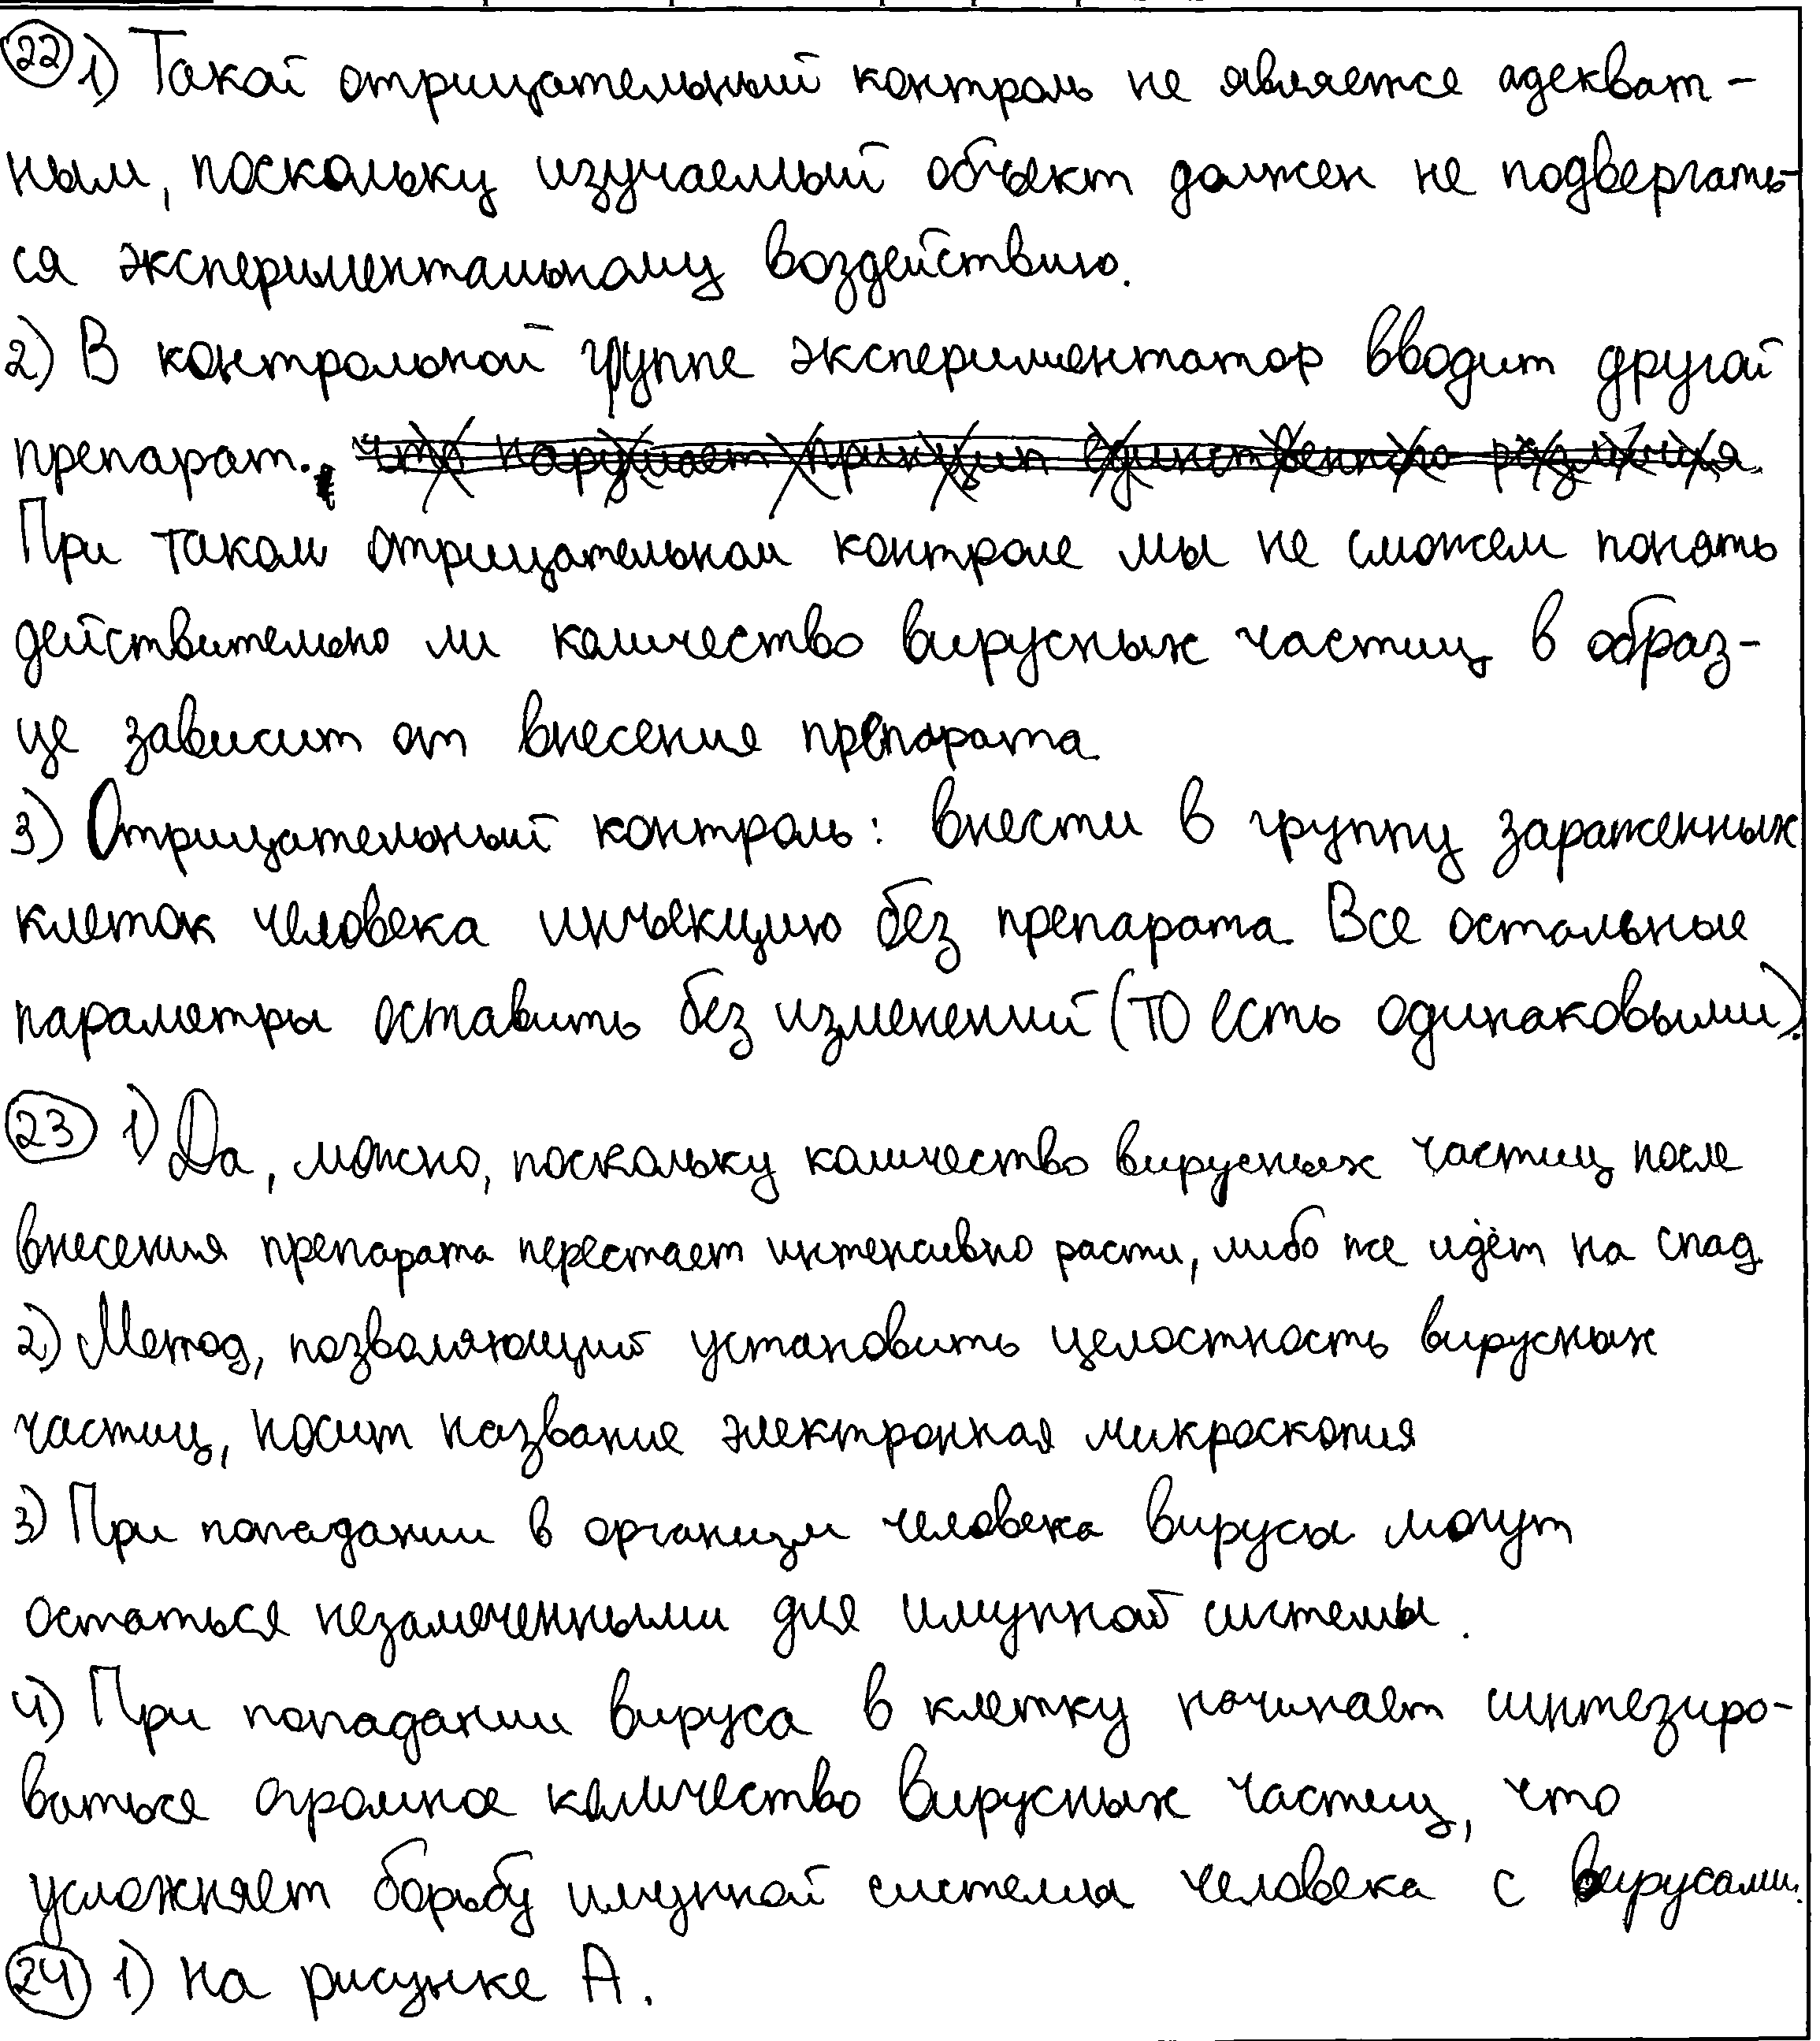 22 1) Такой отрицательный контроль не является адекват-
ным, поскольку изучаемый объект должен не подвергать-
ся экспериментальному воздействию.
2) В контрольной группе экспериментатор вводит другой
препарат. что нарушает принцип единственного различия.
При таком отрицательном контроле мы не сможем понять
действительно ли количество вирусных частиц в образ-
це зависит от внесения препарата.
3) Отрицательный контроль: внести в группу зараженных
клеток человека инъекцию без препарата. Все остальные
параметры оставить без изменений (то есть одинаковыми).
23 1) Да, можно, поскольку количество вирусных частиц после
внесения препарата перестает интенсивно расти, либо же идёт на спад.
2) Метод, позволяющий установить целостность вирусных
частиц, носит название электронная микроскопия
3) При попадании в организм человека вирусы могут
остаться незамеченными для имунной системы.
4) При попадании вируса в клетку начинает синтезиро-
ваться огромное количество вирусных частиц, что
усложняет борьбу имунной системы человека с вирусами.
24 1) на рисунке А.